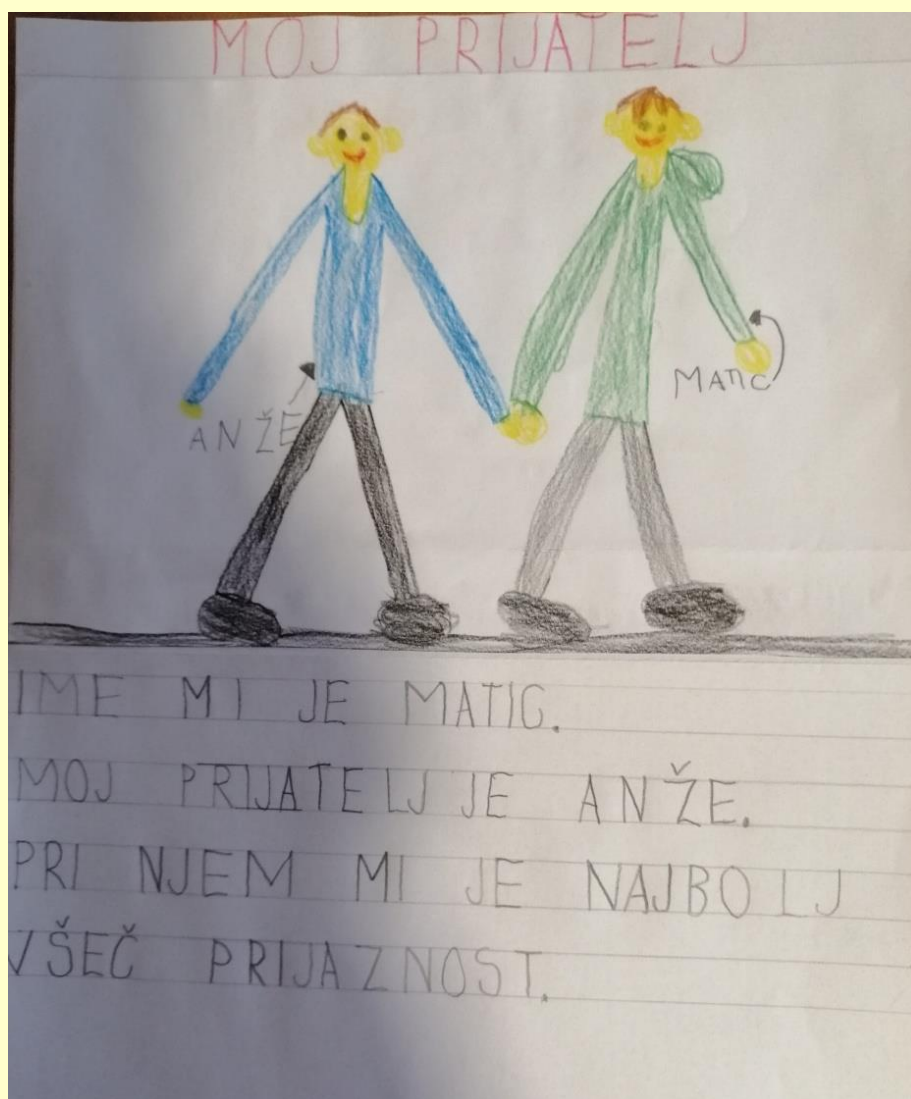 MOJ PRIJATELJ
ANŽE
MATIC
IME MI JE MATIC.
MOJ PRIJATELJ JE ANŽE.
PRI NJEM MI JE NAJBOLJ
VŠEČ PRIJAZNOST.